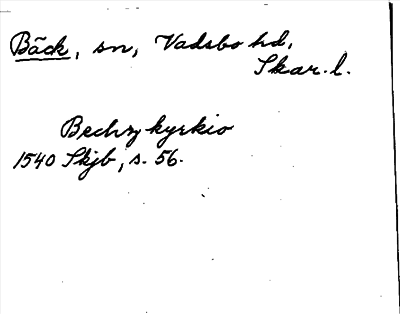 Bäck, sn, Vadsbo hd,
Skar. l.
Bechz kyrkio
1540 Skjb, s. 56.